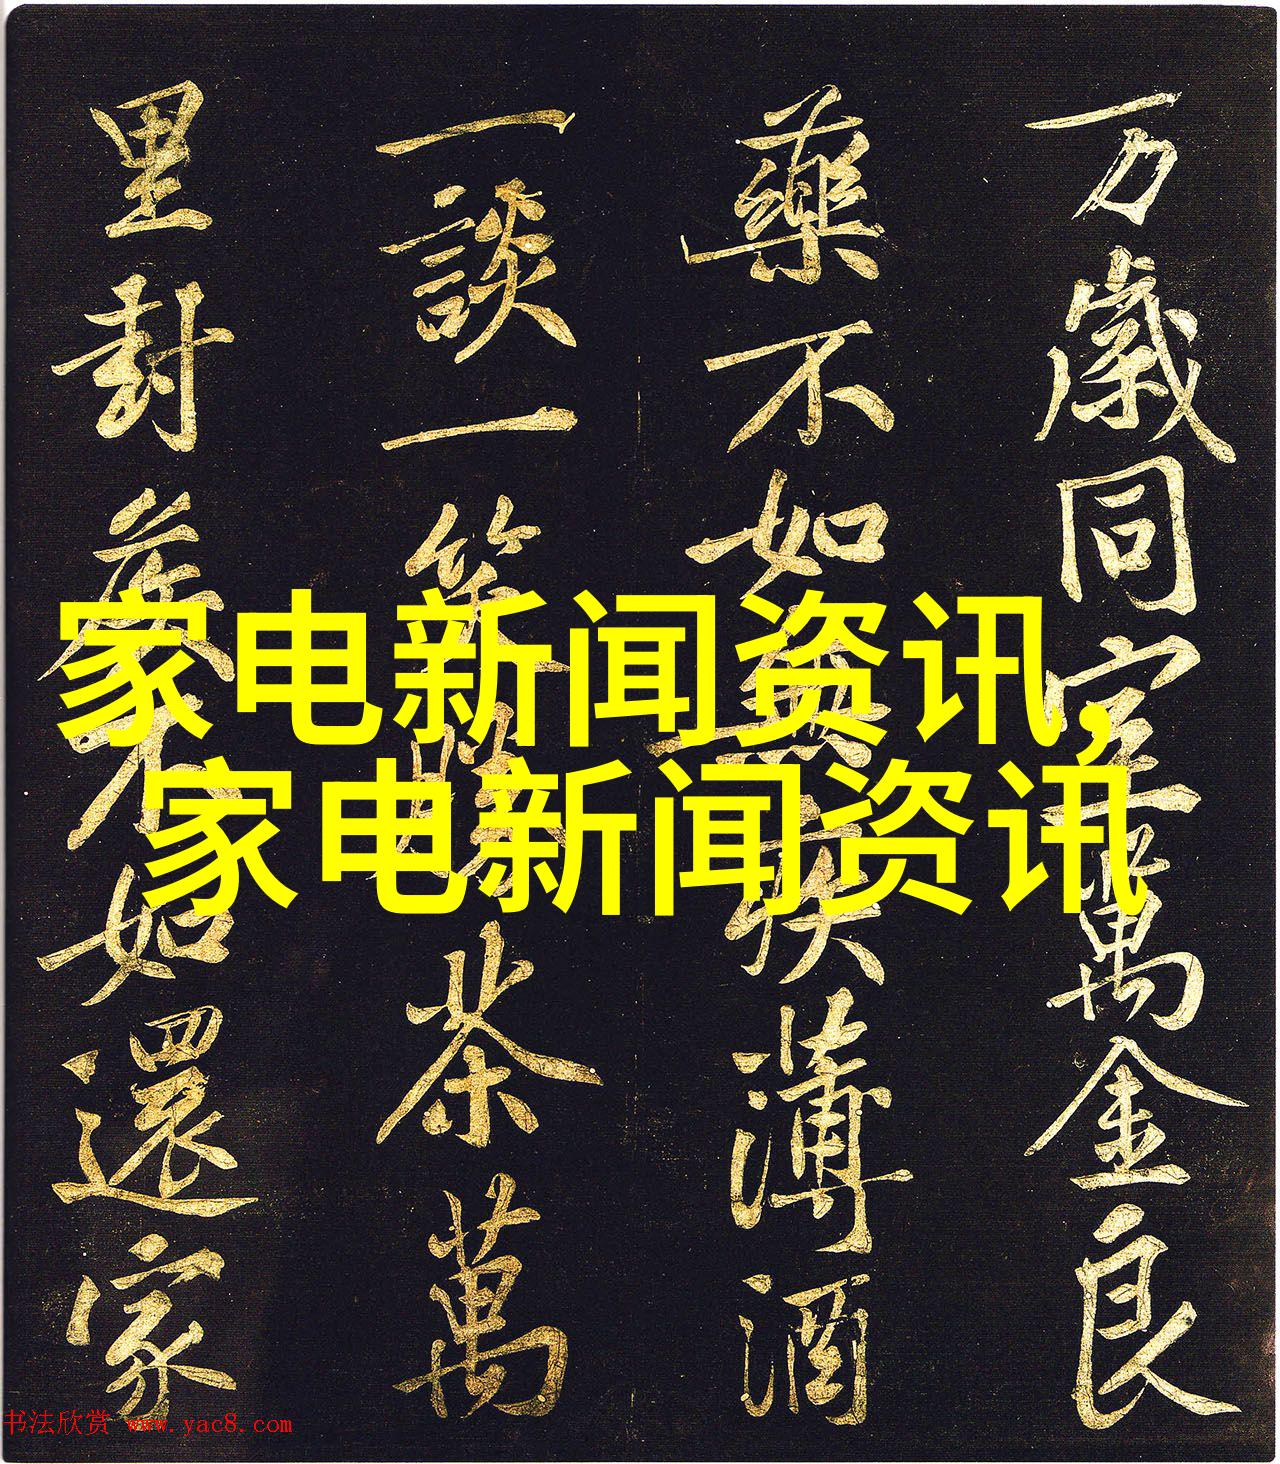 万歲同室萬金良
藥不如無疾薄酒
一談一笑勝茶萬
里封侯不如還家
家电新闻资讯,
家电新闻资讯
书法欣赏 www.yac8.com